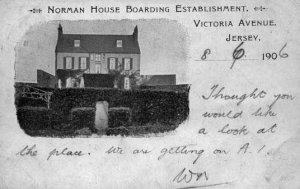 NORMAN HOUSE BOARDING ESTABLISHMENT,
VICTORIA AVENUE,
JERSEY,
8 6 1906
Thought you
would like
a look at
the place. We are getting on A.1.